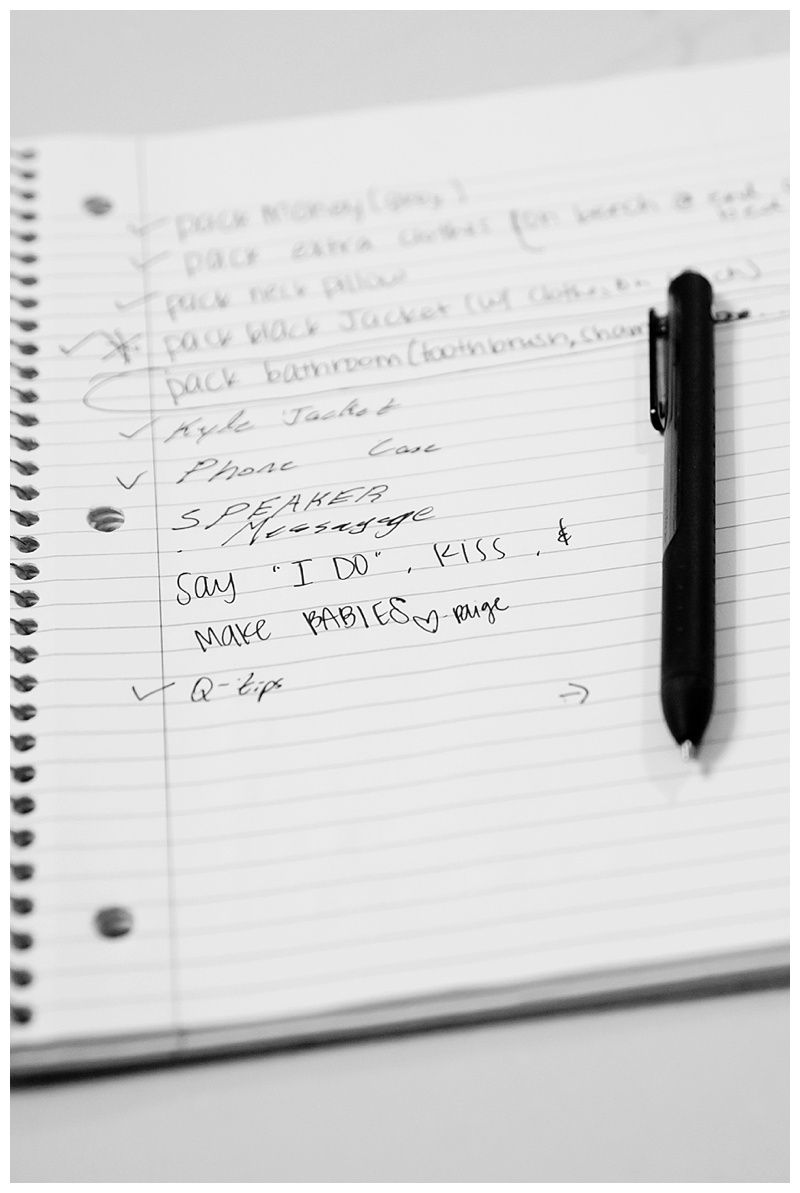 ✓ pack money (
✓ pack extra clothes (on bench @
✓ pack neck pillow
✓ * pack black Jacket (w/ clothes on bench)
pack bathroom (toothbrush, sham
✓ Kyle Jacket
✓ Phone Case
SPEAKER
Meassagage
Say "I DO", KiSS, &
Make BABIES ♡ - Paige
✓ Q-tips →